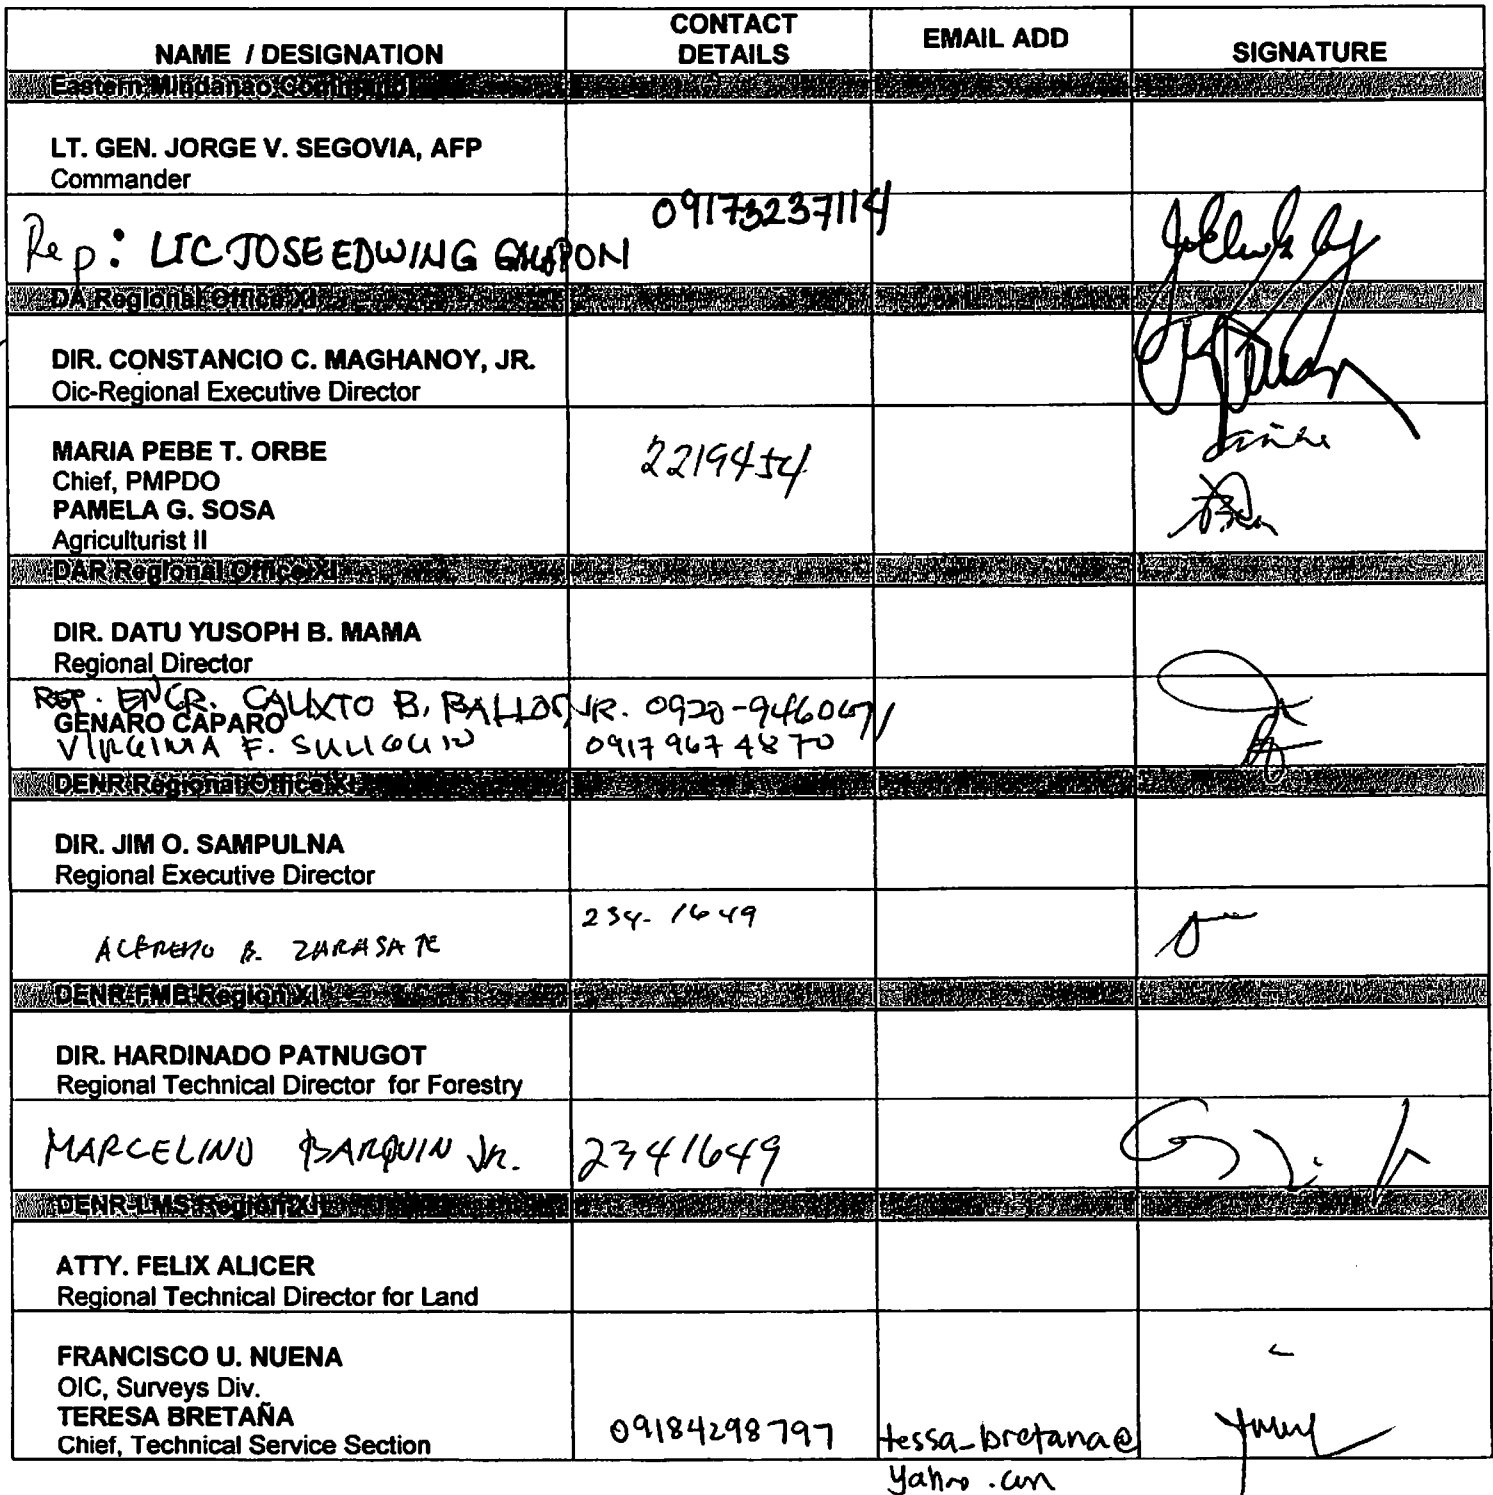 NAME / DESIGNATION
CONTACT DETAILS
EMAIL ADD
SIGNATURE
Eastern Mindanao Command
LT. GEN. JORGE V. SEGOVIA, AFP
Commander
Rep: LTC JOSE EDWING
09173237114
DA Regional Office XI
DIR. CONSTANCIO C. MAGHANOY, JR.
Oic-Regional Executive Director
MARIA PEBE T. ORBE
Chief, PMPDO
2219454
PAMELA G. SOSA
Agriculturist II
DAR Regional Office XI
DIR. DATU YUSOPH B. MAMA
Regional Director
REP. ENGR. CALIXTO B. JR. 0920-
GENARO CAPARO
VIRGINIA F. 0917 967 4870
DENR Regional Office XI
DIR. JIM O. SAMPULNA
Regional Executive Director
234-1649
ALFREDO B. ZARASATE
DENR-FMB Region XI
DIR. HARDINADO PATNUGOT
Regional Technical Director for Forestry
MARCELINO BARQUIN JR. 2341649
DENR-LMS Region XI
ATTY. FELIX ALICER
Regional Technical Director for Land
FRANCISCO U. NUENA
OIC, Surveys Div.
TERESA BRETAÑA
Chief, Technical Service Section
09184298797
tessa_bretana@
yahoo.com